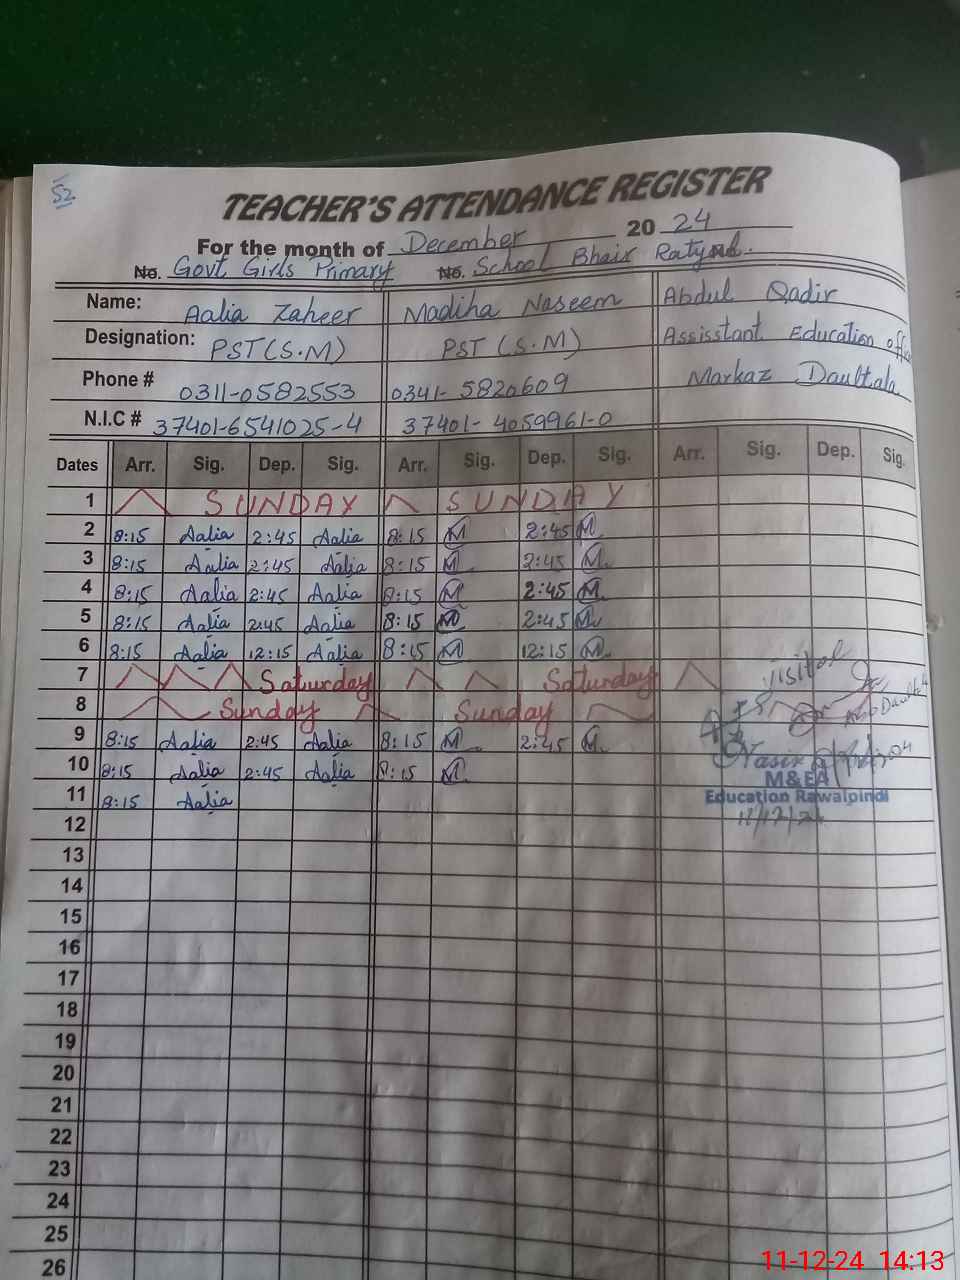 52
TEACHER'S ATTENDANCE REGISTER
For the month of December 20 24
No. Govt Girls Primary No. School Bhair Ratyal.
Name: Aalia Zaheer Madiha Naseem Abdul Qadir
Designation: PST (S.M) PST (S.M) Assisstant Education officer
Phone # 0311-0582553 0341-5820609 Markaz Daultala
N.I.C # 37401-6541025-4 37401-4059961-0
Dates Arr. Sig. Dep. Sig. Arr. Sig. Dep. Sig. Arr. Sig. Dep. Sig.
1 SUNDAY SUNDAY
2 8:15 Aalia 2:45 Aalia 8:15 M 2:45 M
3 8:15 Aalia 2:45 Aalia 8:15 M 2:45 M
4 8:15 Aalia 2:45 Aalia 8:15 M 2:45 M
5 8:15 Aalia 2:45 Aalia 8:15 M 2:45 M
6 8:15 Aalia 12:15 Aalia 8:15 M 12:15 M
7 Saturday Saturday visited
8 Sunday Sunday
9 8:15 Aalia 2:45 Aalia 8:15 M 2:45 M
10 8:15 Aalia 2:45 Aalia 8:15 M Nasir
M&EA
11 8:15 Aalia Education Rawalpindi
12 11/12/24
13
14
15
16
17
18
19
20
21
22
23
24
25
26
11-12-24 14:13